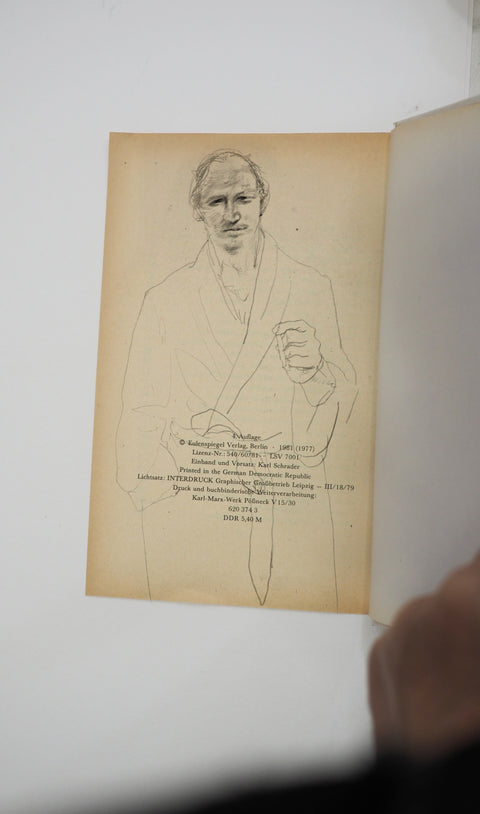 4. Auflage
© Eulenspiegel Verlag, Berlin · 1981 (1977)
Lizenz-Nr.: 540/60/81 · LSV 7001
Einband und Vorsatz: Karl Schrader
Printed in the German Democratic Republic
Lichtsatz: INTERDRUCK Graphischer Großbetrieb Leipzig – III/18/79
Druck und buchbinderische Weiterverarbeitung:
Karl-Marx-Werk Pößneck V 15/30
620 374 3
DDR 5,40 M